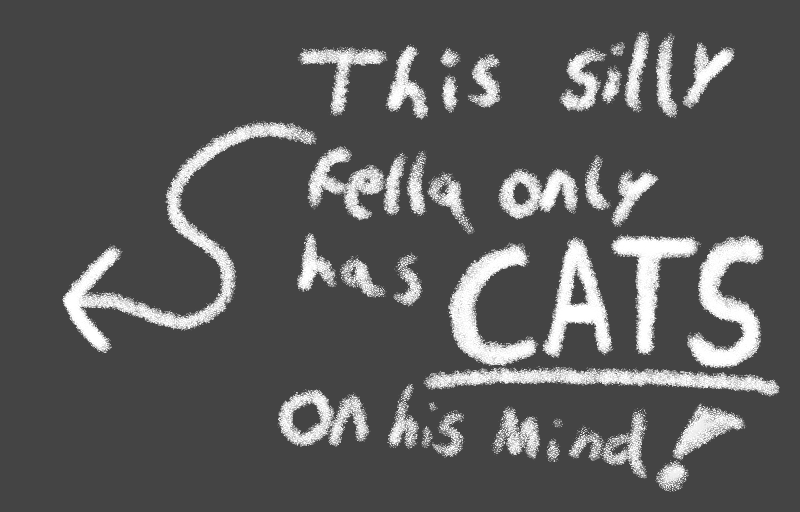 This silly
fella only
has CATS
on his Mind!